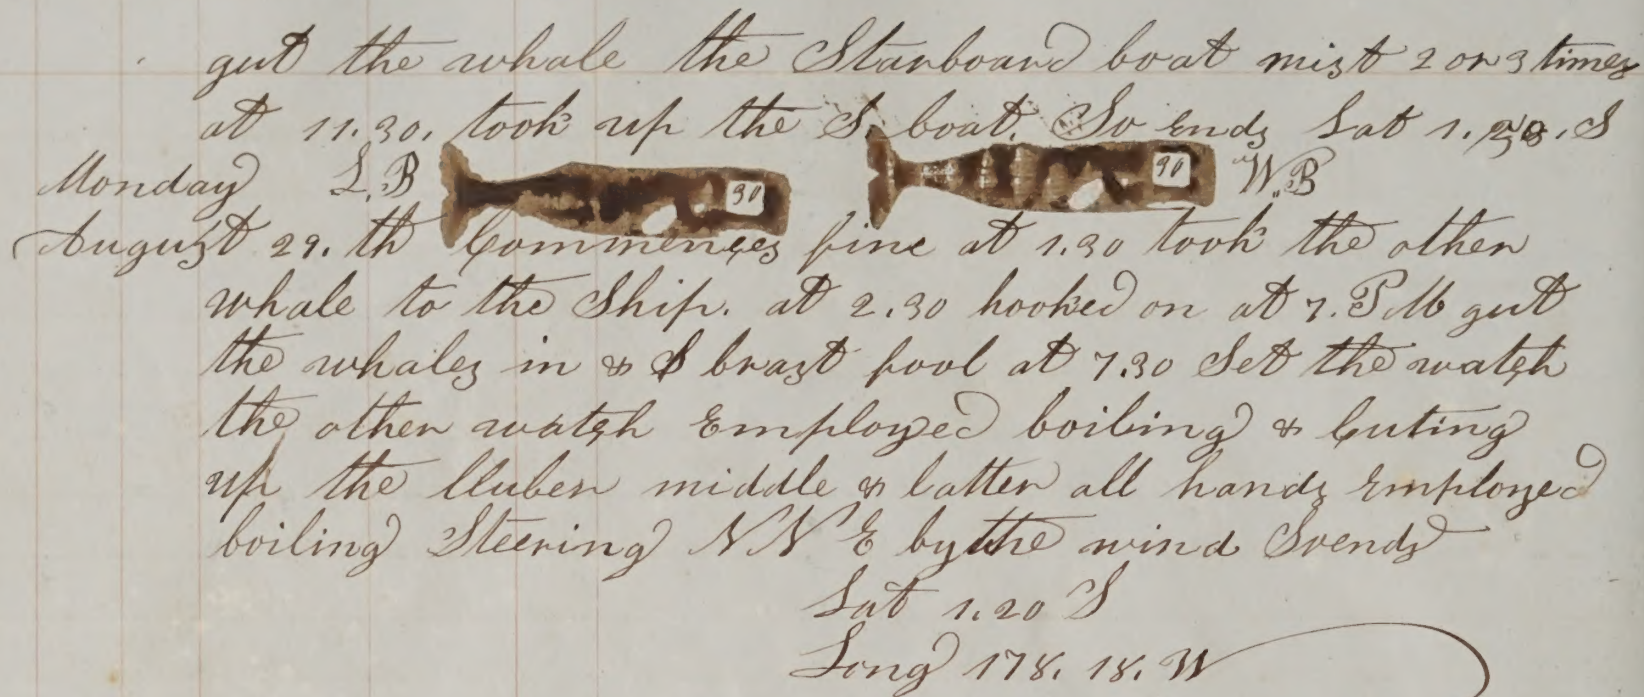 gut the whale the Starboard boat mist 2 or 3 times
at 11.30. took up the S. boat. So Ends Lat 1.28.S
Monday L.B 30 30 W.B
August 29.th Commences fine at 1.30 took the other
whale to the Ship. at 2.30 hooked on at 7. P M gut
the whales in & S brast fool at 7.30 Set the watch
the other watch Employed boiling & Cuting
up the bluber middle & latter all hands Employed
boiling Steering N N E by the wind So ends
Lat 1.20 S
Long 178. 18. W